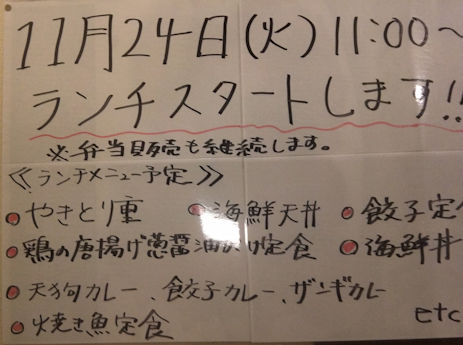 11月24日(火)11:00〜
ランチスタートします!!
※弁当販売も継続します。
≪ランチメニュー予定≫
●やきとり重 ●海鮮天丼 ●餃子定
●鶏の唐揚げ葱醤油 定食 ●海鮮丼
●天狗カレー、餃子カレー、ザンギカレー
●焼き魚定食 etc